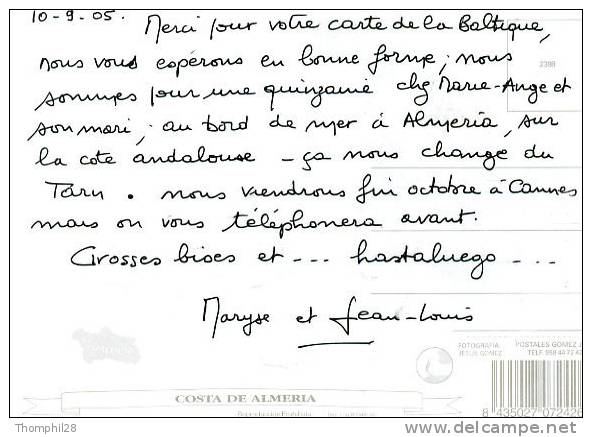 10-9-05.
Merci pour votre carte de la Baltique,
nous vous espérons en bonne forme; nous
2398
sommes pour une quinzaine chez Marie-Ange et
son mari, au bord de mer à Almeria, sur
la cote andalouse - ça nous change du
Tarn. nous viendrons fin octobre à Cannes
mais on vous téléphonera avant.
Grosses bises et --- hastaluego ---
Maryse et Jean-Louis
FOTOGRAFIA
JESUS GOMEZ
POSTALES GOMEZ
TELF. 958 44 72 42
COSTA DE ALMERIA
8 435027 072426
Thomphil28
www.delcampe.net